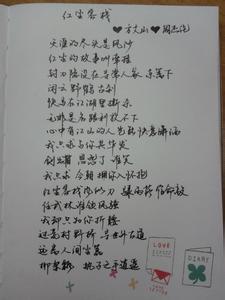 红尘客栈
方文山 周杰伦
天涯的尽头是风沙
红尘的故事叫牵挂
封刀隐没在寻常人家 东篱下
闲云 野鹤 古刹
快马在江湖里厮杀
无非是名跟利放不下
心中有江山的人岂能快意潇洒
我只求与你共华发
剑出鞘 恩怨了 谁笑
我只求 今朝 拥你入怀抱
红尘客栈风似刀 骤雨落 宿命敲
任武林谁领风骚
我却只为你折腰
过荒村野桥 寻世外古道
远离人间尘嚣
柳絮飘 执子之手逍遥
LOVE
DIARY